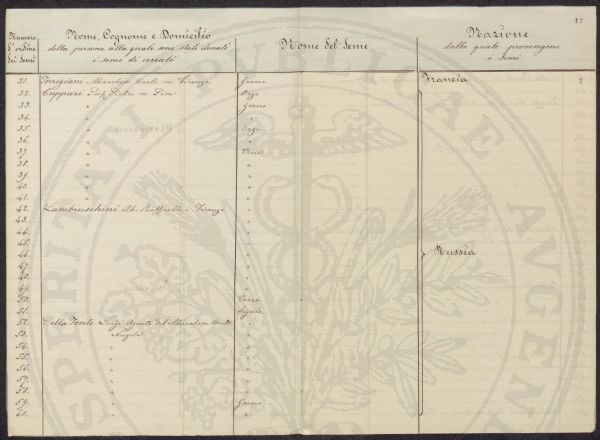 12
Numero
d'ordine
dei semi
Nome, Cognome e Domicilio
della persona alla quale sono stati donati
i semi di cereali
Nome del seme
Nazione
dalla quale provengono
i semi
31. Torrigiani Marchese Carlo = Firenze Grano Francia
32. Cuppari Prof. Pietro = Pisa
33. " Grano
34. " "
35. " Orzo
36. " "
37. "
38. " "
39. " "
40. " "
41. " "
42. Lambruschini Ab. Raffaello = Firenze "
43. "
44. "
45. "
46. " Russia
47. "
48. "
49. "
50.
51. Segale
52. Della Fonte Luigi Agente del Marchese
53. "
54. " "
55. " "
56. " "
57. " "
58. " "
59. " Grano
60. " "
PUBLICAE
PROSPERITATI
AUGENDAE